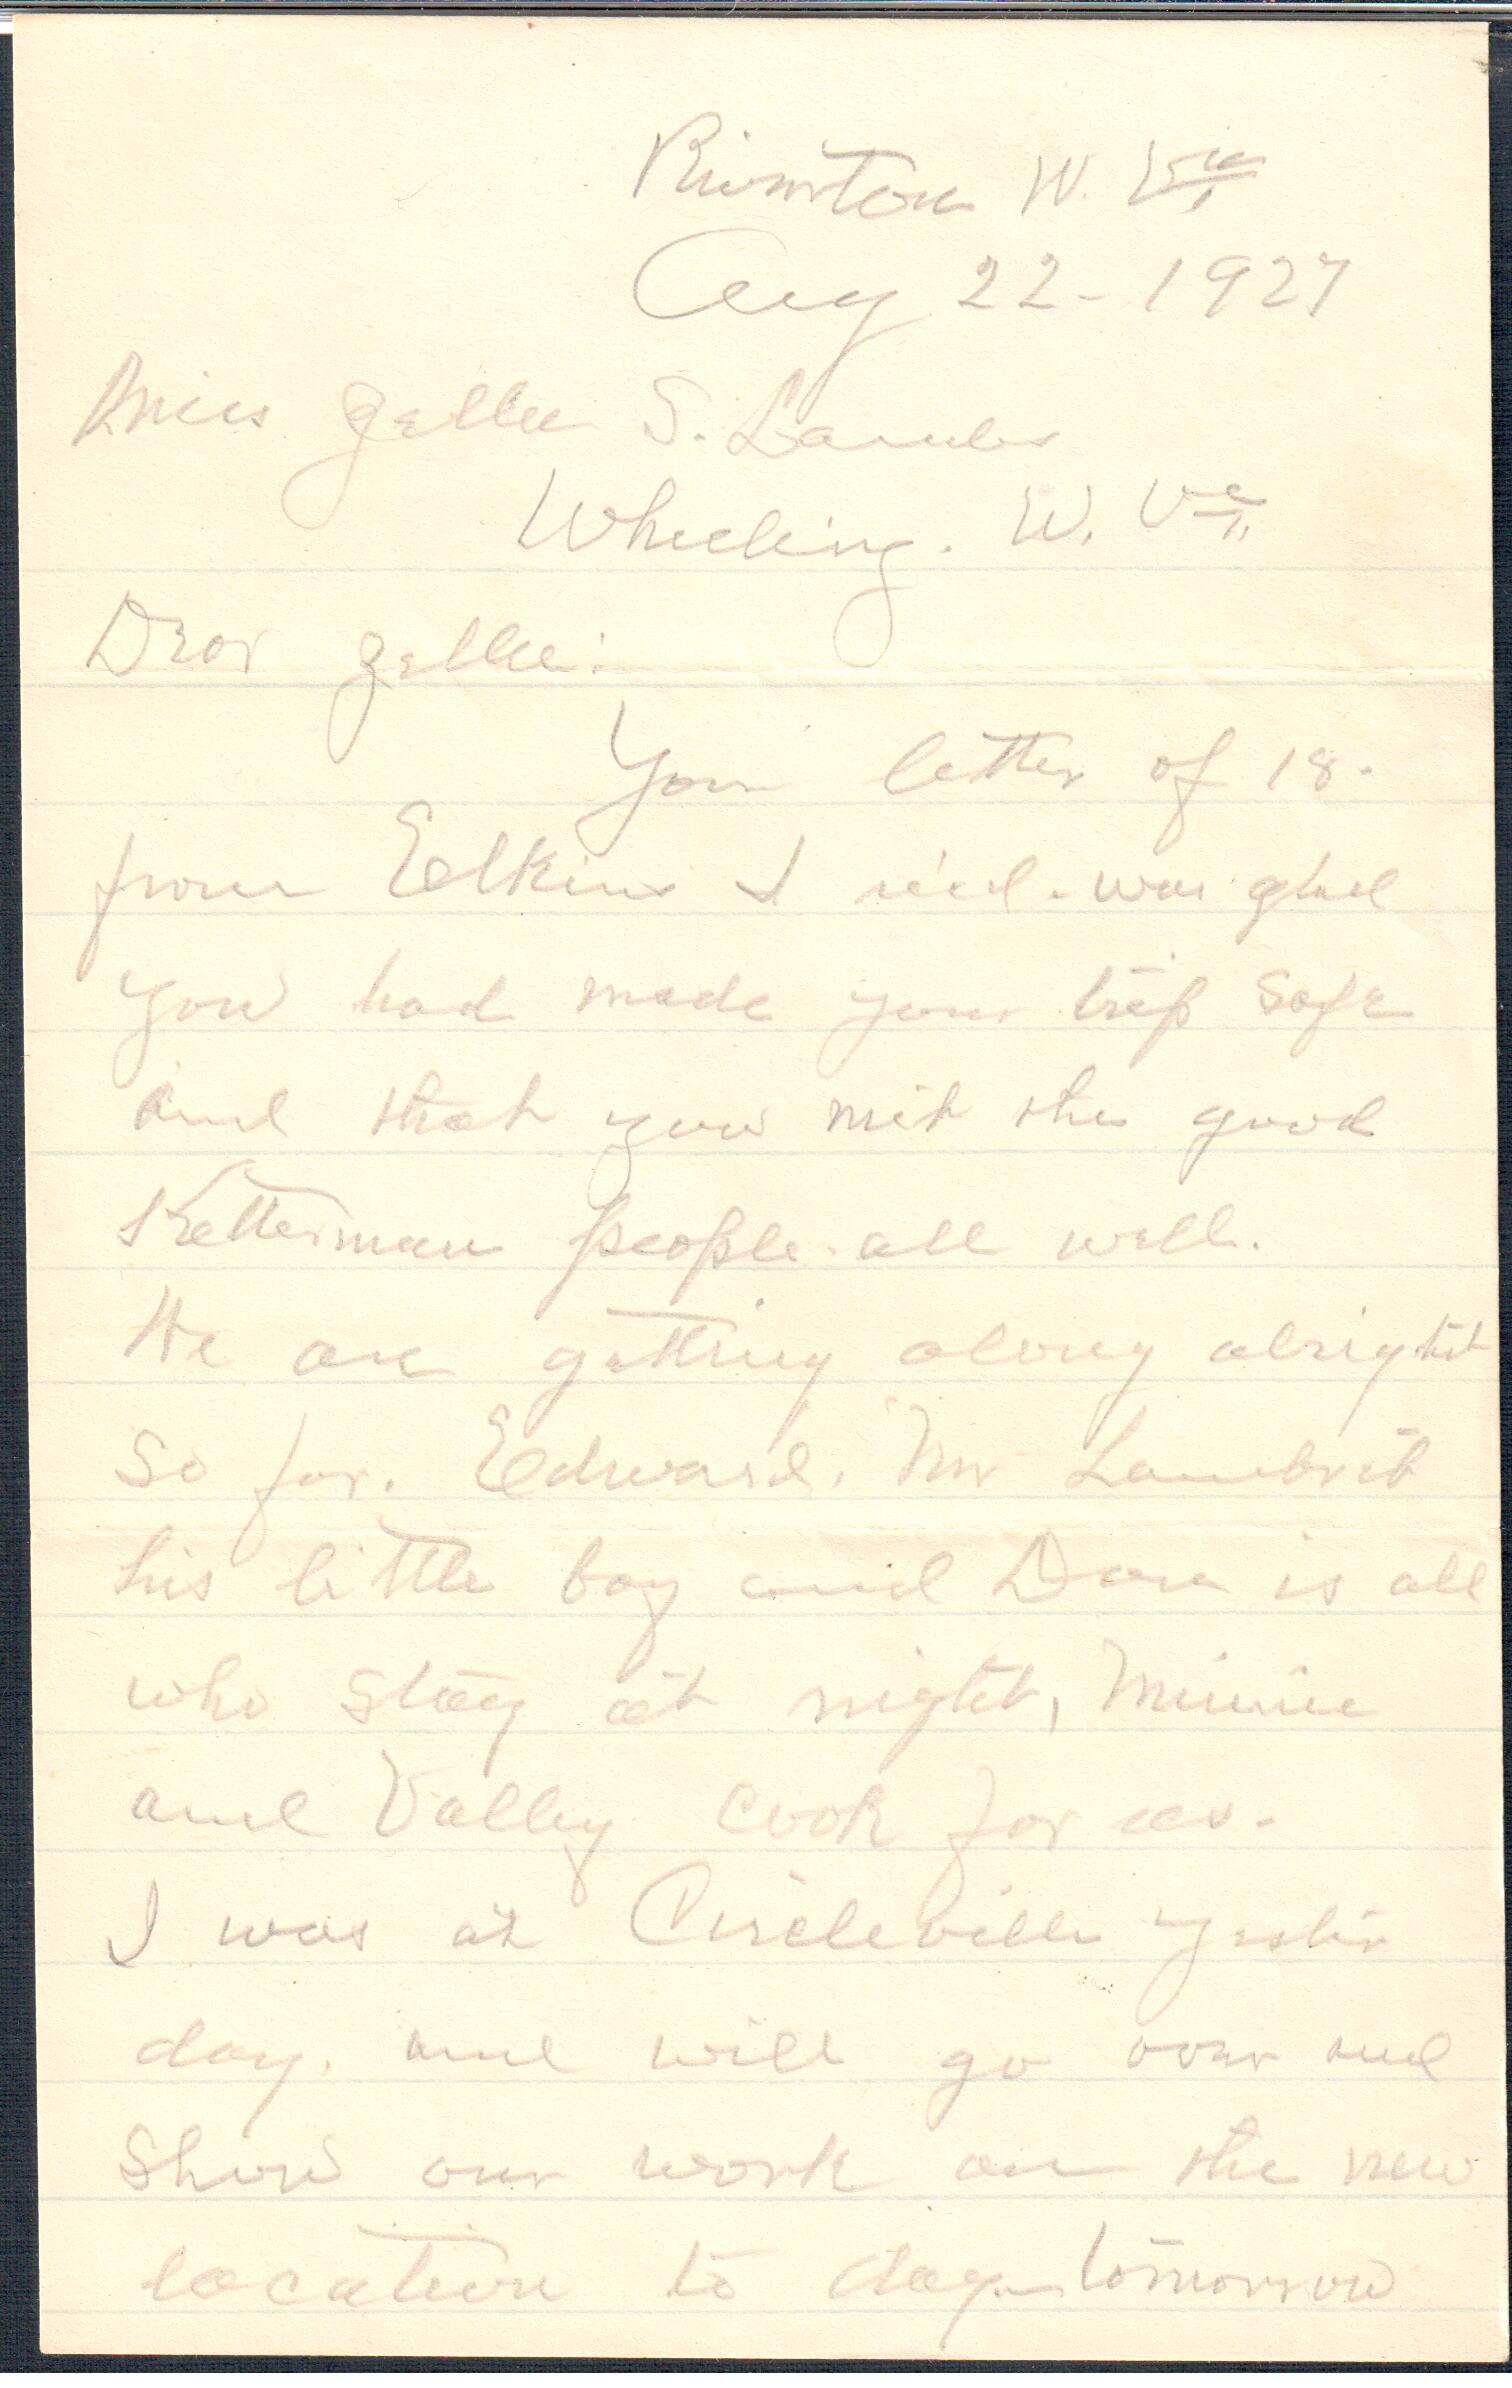 Riverton W. Va.
Aug 22 - 1927
Miss Zella S. Lamb
Wheeling. W. Va.
Dear Zella:
Your letter of 18.
from Elkins I rec'd. was glad
you had made your trip safe
and that you met the good
Ketterman people. all well.
We are getting along alright
so far. Edward. Mr Lambert
his little boy and Dora is all
who stay at night, Minnie
and Valley cook for us.
I was at Circleville yester
day. and will go over and
show our work on the new
location to day. tomorrow